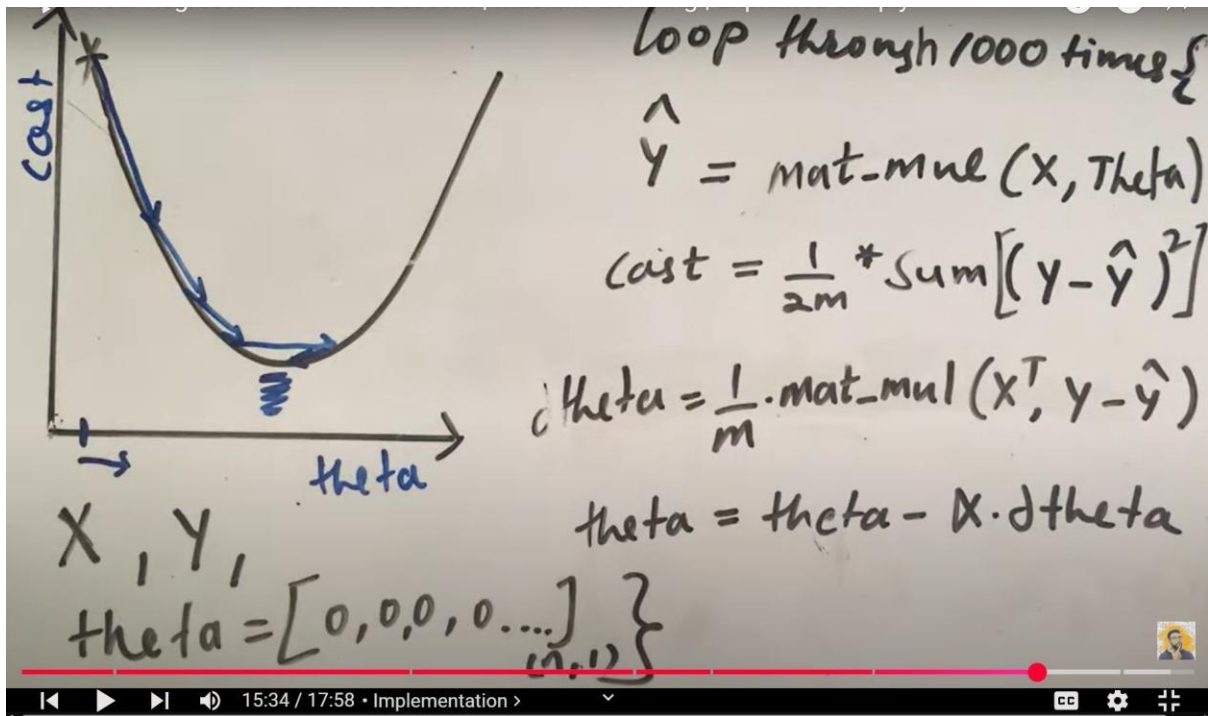 cost
theta
X, Y,
theta = [0, 0, 0, 0....]
(n, 1)
loop through 1000 times {
Ŷ = mat_mul (X, Theta)
cost = 1/2m * Sum[(Y - Ŷ)²]
dtheta = 1/m . mat_mul (Xᵀ, Y - Ŷ)
theta = theta - α . dtheta
}
15:34 / 17:58 • Implementation >
CC